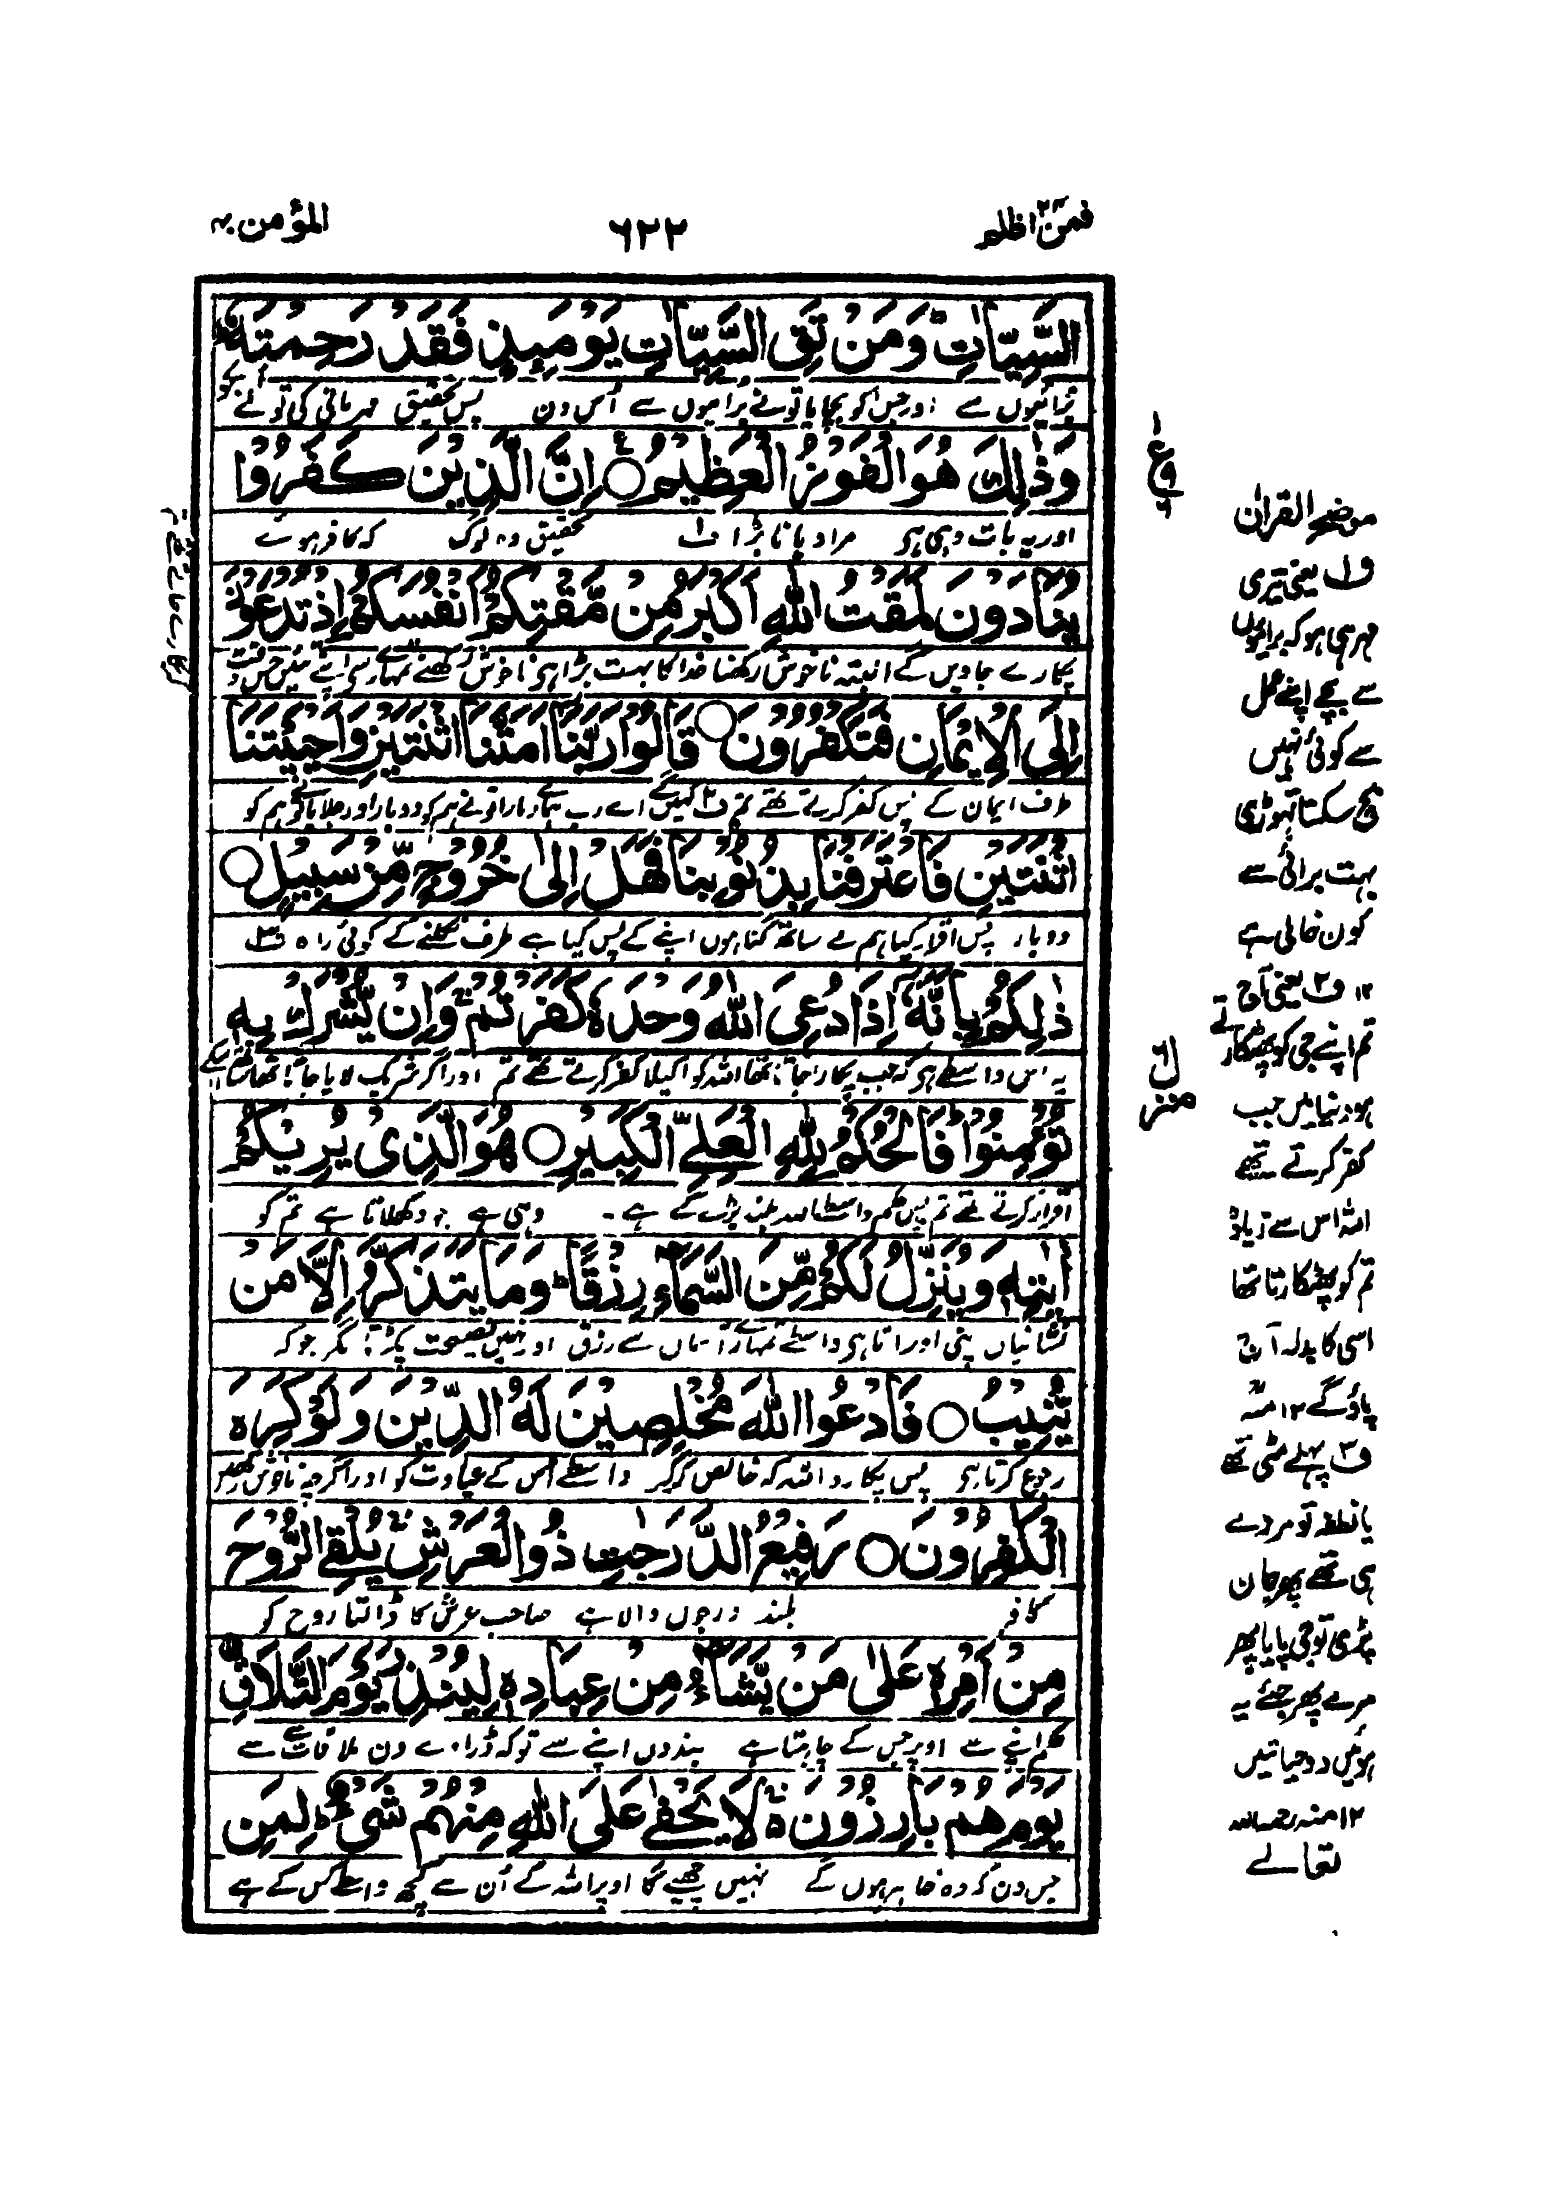 فمن اظلم ۲۴
۶۲۲
المؤمن ۴۰
السَّيِّاٰتِ ؕ وَمَنْ تَقِ السَّيِّاٰتِ يَوْمَئِذٍ فَقَدْ رَحِمْتَهٗ ؕ
بُرائیوں سے اور جس کو بچایا تونے برائیوں سے اُس دن پس تحقیق مہربانی کی تو نے اُس کو
وَذٰلِكَ هُوَ الْفَوْزُ الْعَظِيْمُ ○ اِنَّ الَّذِيْنَ كَفَرُوْا
اور یہ بات وہی ہی مراد پانا بڑا ف۱ تحقیق وہ لوگ کہ کافر ہوئے
يُنَادَوْنَ لَمَقْتُ اللّٰهِ اَكْبَرُ مِنْ مَّقْتِكُمْ اَنْفُسَكُمْ اِذْ تُدْعَوْنَ
پکارے جاویں گے البتہ ناخوش رکھنا خدا کا بہت بڑا ہی ناخوش رکھنے تمہارے سی اپنے تئیں جس وقت
اِلَى الْاِيْمَانِ فَتَكْفُرُوْنَ ○ قَالُوْا رَبَّنَا اَمَتَّنَا اثْنَتَيْنِ وَاَحْيَيْتَنَا
طرف ایمان کے پس کفر کرتے تھے تم ف۲ کہیں گے اے رب ہمارے مارا تونے ہم کو دو بار اور جلایا تونے ہم کو
اثْنَتَيْنِ فَاعْتَرَفْنَا بِذُنُوْبِنَا فَهَلْ اِلٰى خُرُوْجٍ مِّنْ سَبِيْلٍ ○
دو بار پس اقرار کیا ہم نے ساتھ گناہوں اپنے کے پس کیا ہے طرف نکلنے کے کوئی راہ ف۳
ذٰلِكُمْ بِاَنَّهٗ اِذَا دُعِيَ اللّٰهُ وَحْدَهٗ كَفَرْتُمْ ۚ وَاِنْ يُّشْرَكْ بِهٖ
یہ اس واسطے ہی کہ جب پکارا جاتا تھا اللہ کو اکیلا کفر کرتے تھے تم اور اگر شریک لایا جاتا تھا ساتھ اسکے
تُؤْمِنُوْا ؕ فَالْحُكْمُ لِلّٰهِ الْعَلِيِّ الْكَبِيْرِ ○ هُوَ الَّذِيْ يُرِيْكُمْ
اقرار کرتے تھے تم پس حکم واسطے اللہ بلند بڑے کے ہے۔ وہی ہے جو دکھلاتا ہے تم کو
اٰيٰتِهٖ وَيُنَزِّلُ لَكُمْ مِّنَ السَّمَآءِ رِزْقًا ؕ وَمَا يَتَذَكَّرُ اِلَّا مَنْ
نشانیاں اپنی اور اتارتا ہی واسطے تمہارے آسماں سے رزق اور نہیں نصیحت پکڑتا مگر جو کہ
يُّنِيْبُ ○ فَادْعُوا اللّٰهَ مُخْلِصِيْنَ لَهُ الدِّيْنَ وَلَوْ كَرِهَ
رجوع کرتا ہی پس پکارو اللہ کو خالص کر کر واسطے اُس کے عبادت کو اور اگرچہ ناخوش رکھیں
الْكٰفِرُوْنَ ○ رَفِيْعُ الدَّرَجٰتِ ذُو الْعَرْشِ ۚ يُلْقِي الرُّوْحَ
کافر بلند درجوں والا ہے صاحب عرش کا ڈالتا روح کو
مِنْ اَمْرِهٖ عَلٰى مَنْ يَّشَآءُ مِنْ عِبَادِهٖ لِيُنْذِرَ يَوْمَ التَّلَاقِ ○
حکم اپنے سے اوپر جس کے چاہتا ہے بندوں اپنے سے توکہ ڈراوے دن ملاقات سے
يَوْمَ هُمْ بَارِزُوْنَ ۚ لَا يَخْفٰى عَلَى اللّٰهِ مِنْهُمْ شَيْءٌ ؕ لِمَنِ
جس دن کہ وہ ظاہر ہوں گے نہیں چھپے گا اوپر اللہ کے اُن سے کچھ واسطے کس کے ہے
۱
ع
۹
۶
منزل ۶
موضح القرآن
ف۱ یعنی تیری
مہر ہی ہو کہ برائیوں
سے بچے اپنے عمل
سے کوئی نہیں
بچ سکتا تھوڑی
بہت برائی سے
کون خالی ہے
۱۲ ف۲ یعنی آج
تم اپنے جی کو پھٹکارتے
ہو دنیا میں جب
کفر کرتے تھے
اللہ اس سے زیادہ
تم کو پھٹکارتا تھا
اسی کا بدلہ آج
پاؤگے ۱۲ منہ
ف۳ پہلے مٹی تھے
یا نطفہ تو مردے
ہی تھے پھر جان
پڑی تو جی پایا پھر
مرے پھر جئے یہ
ہوئیں دو حیاتیں
۱۲ منہ رحمہ اللہ
تعالے